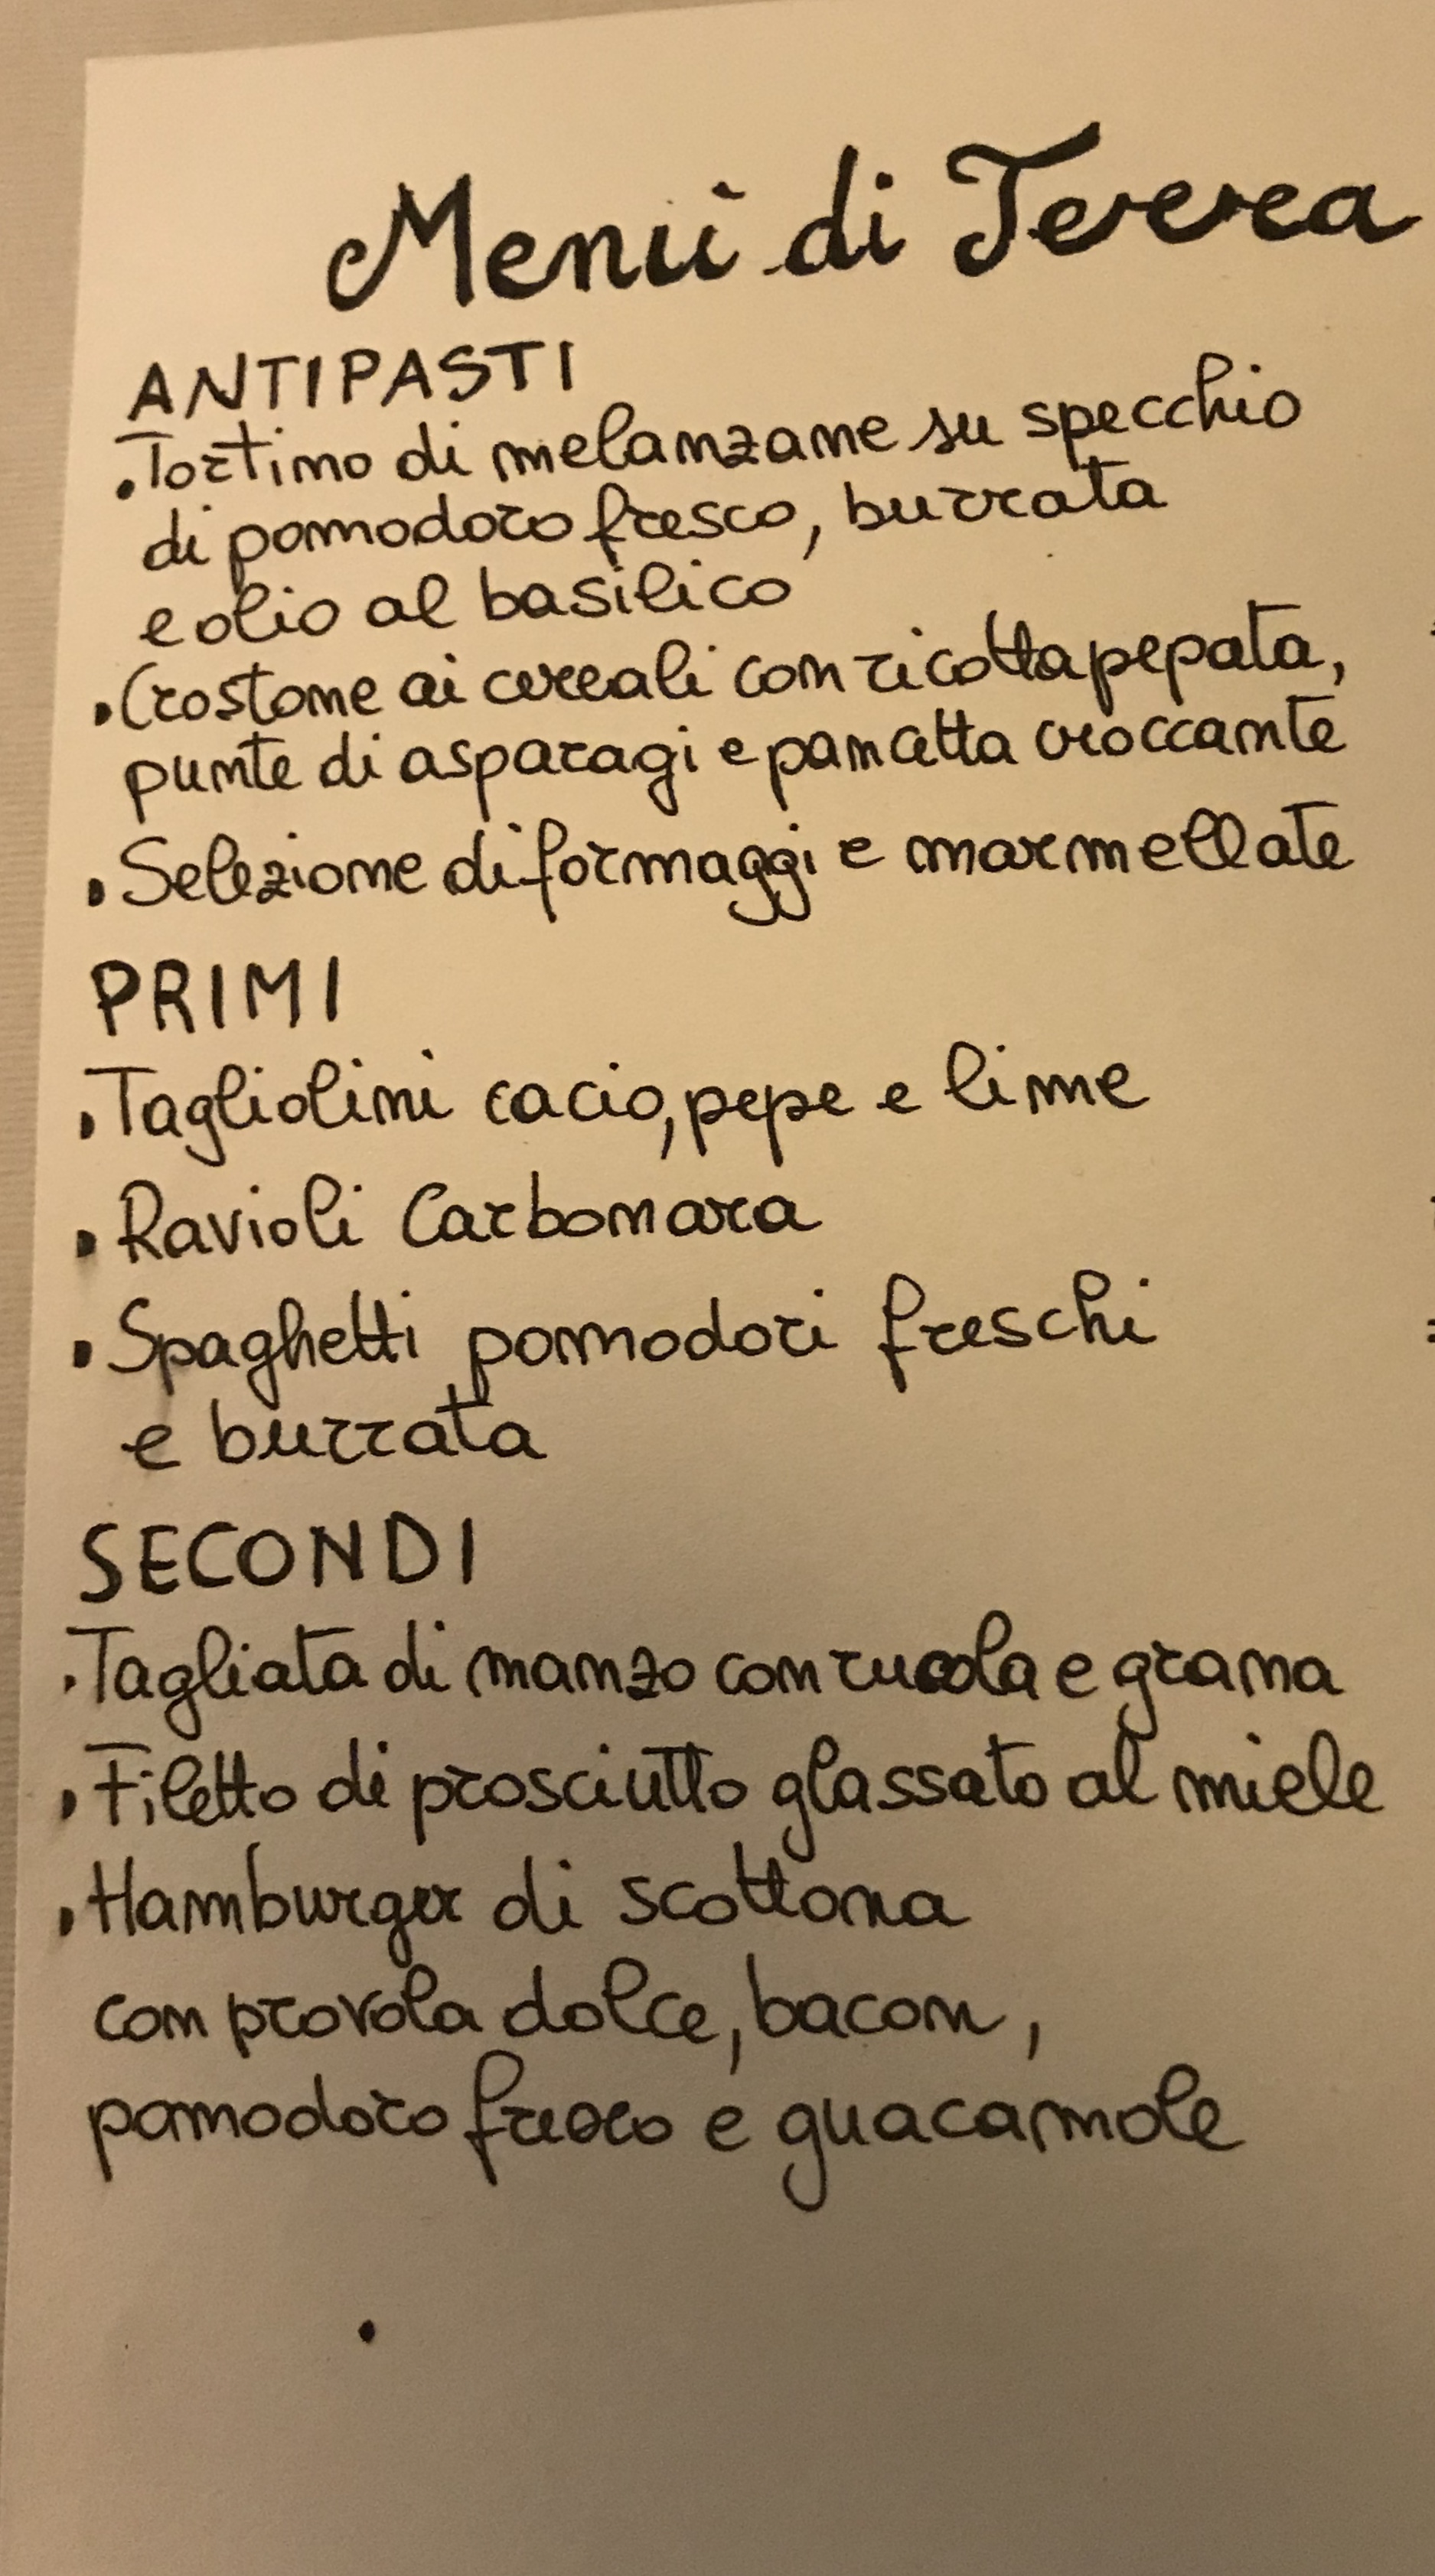 Menù di Terra
ANTIPASTI
• Tortino di melanzane su specchio
di pomodoro fresco, burrata
e olio al basilico
• Crostone ai cereali con ricotta pepata,
punte di asparagi e pancetta croccante
• Selezione di formaggi e marmellate
PRIMI
• Tagliolini cacio, pepe e lime
• Ravioli Carbonara
• Spaghetti pomodori freschi
e burrata
SECONDI
• Tagliata di manzo con rucola e grana
• Filetto di prosciutto glassato al miele
• Hamburger di scottona
con provola dolce, bacon,
pomodoro fresco e guacamole